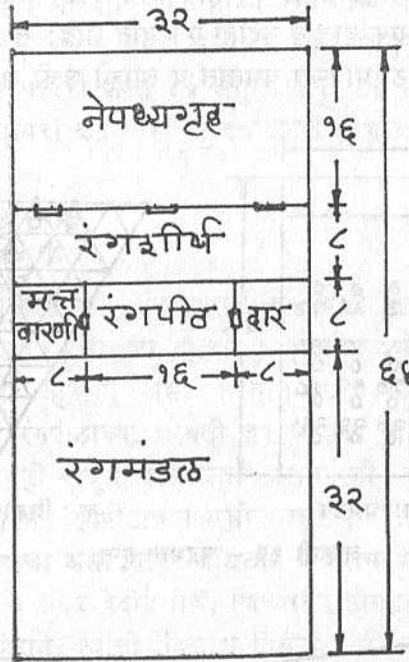 ३२
नेपथ्यगृह
१६
रंगशीर्ष
८
मत्त वारणी
रंगपीठ
दार
८
८
१६
८
रंगमंडल
३२